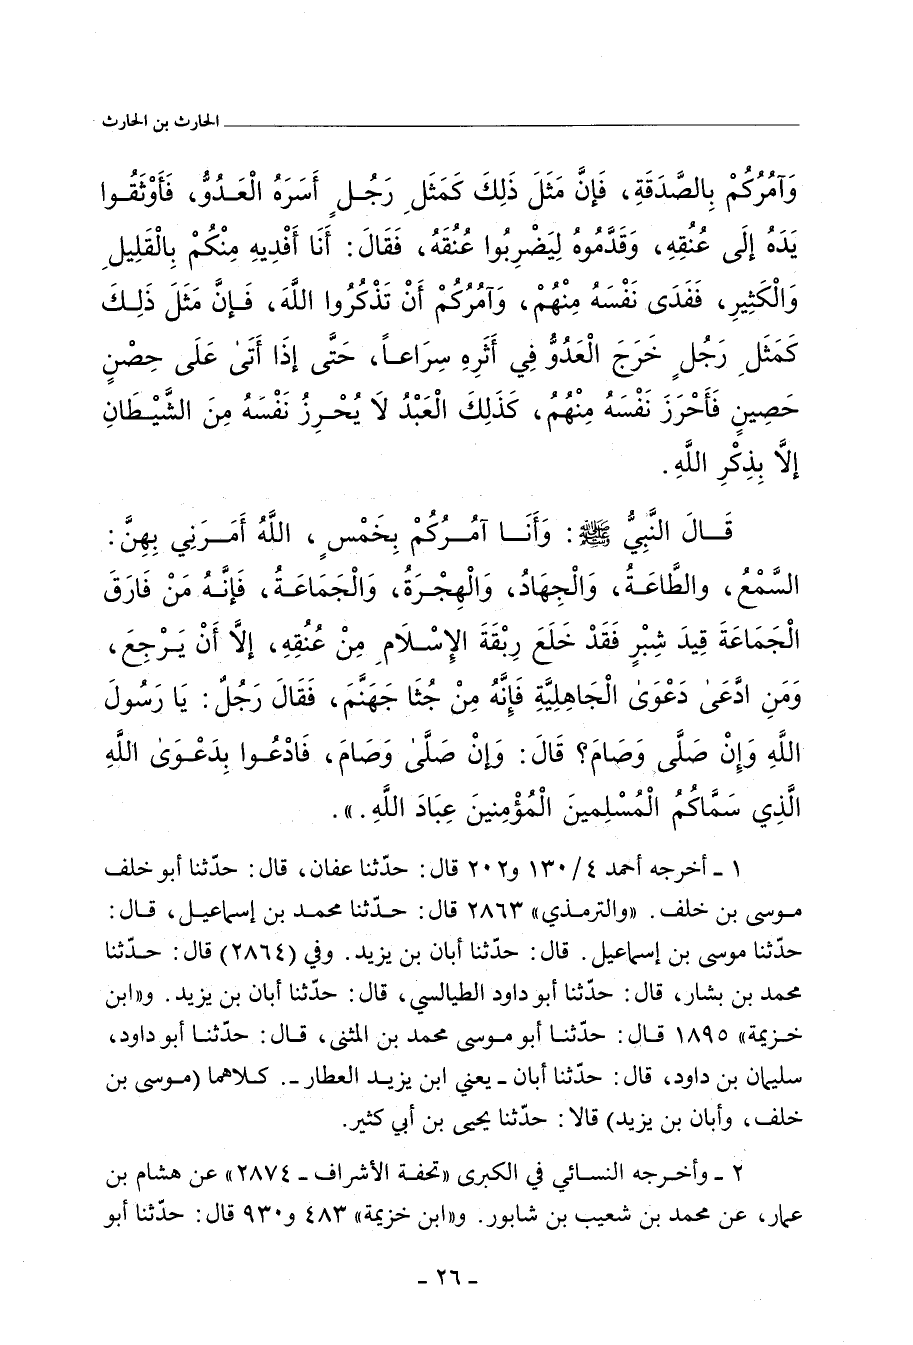 الحارث بن الحارث
وَآمُرُكُمْ بِالصَّدَقَةِ، فَإِنَّ مَثَلَ ذَلِكَ كَمَثَلِ رَجُلٍ أَسَرَهُ الْعَدُوُّ، فَأَوْثَقُوا
يَدَهُ إِلَى عُنُقِهِ، وَقَدَّمُوهُ لِيَضْرِبُوا عُنُقَهُ، فَقَالَ: أَنَا أَفْدِيهِ مِنْكُمْ بِالْقَلِيلِ
وَالْكَثِيرِ، فَفَدَى نَفْسَهُ مِنْهُمْ، وَآمُرُكُمْ أَنْ تَذْكُرُوا اللَّهَ، فَإِنَّ مَثَلَ ذَلِكَ
كَمَثَلِ رَجُلٍ خَرَجَ الْعَدُوُّ فِي أَثَرِهِ سِرَاعاً، حَتَّى إِذَا أَتَىٰ عَلَى حِصْنٍ
حَصِينٍ فَأَحْرَزَ نَفْسَهُ مِنْهُمْ، كَذَلِكَ الْعَبْدُ لَا يُحْرِزُ نَفْسَهُ مِنَ الشَّيْطَانِ
إِلَّا بِذِكْرِ اللَّهِ.
قَالَ النَّبِيُّ ﷺ: وَأَنَا آمُرُكُمْ بِخَمْسٍ، اللَّهُ أَمَرَنِي بِهِنَّ:
السَّمْعُ، والطَّاعَةُ، وَالْجِهَادُ، وَالْهِجْرَةُ، وَالْجَمَاعَةُ، فَإِنَّهُ مَنْ فَارَقَ
الْجَمَاعَةَ قِيدَ شِبْرٍ فَقَدْ خَلَعَ رِبْقَةَ الإِسْلَامِ مِنْ عُنُقِهِ، إِلَّا أَنْ يَرْجِعَ،
وَمَنِ ادَّعَىٰ دَعْوَىٰ الْجَاهِلِيَّةِ فَإِنَّهُ مِنْ جُثَا جَهَنَّمَ، فَقَالَ رَجُلٌ: يَا رَسُولَ
اللَّهِ وَإِنْ صَلَّى وَصَامَ؟ قَالَ: وَإِنْ صَلَّىٰ وَصَامَ، فَادْعُوا بِدَعْوَىٰ اللَّهِ
الَّذِي سَمَّاكُمُ الْمُسْلِمينَ الْمُؤْمِنينَ عِبَادَ اللَّهِ.».
١ ـ أخرجه أحمد ٤/١٣٠ و٢٠٢ قال: حدّثنا عفان، قال: حدّثنا أبو خلف
موسى بن خلف. «والترمذي» ٢٨٦٣ قال: حدّثنا محمد بن إسماعيل، قال:
حدّثنا موسى بن إسماعيل. قال: حدّثنا أبان بن يزيد. وفي (٢٨٦٤) قال: حدّثنا
محمد بن بشار، قال: حدّثنا أبو داود الطيالسي، قال: حدّثنا أبان بن يزيد. و«ابن
خزيمة» ١٨٩٥ قال: حدّثنا أبو موسى محمد بن المثنى، قال: حدّثنا أبو داود،
سليمان بن داود، قال: حدّثنا أبان ـ يعني ابن يزيد العطار ـ. كلاهما (موسى بن
خلف، وأبان بن يزيد) قالا: حدّثنا يحيى بن أبي كثير.
٢ ـ وأخرجه النسائي في الكبرى «تحفة الأشراف ـ ٢٨٧٤» عن هشام بن
عمار، عن محمد بن شعيب بن شابور. و«ابن خزيمة» ٤٨٣ و٩٣٠ قال: حدّثنا أبو
ـ ٢٦ ـ